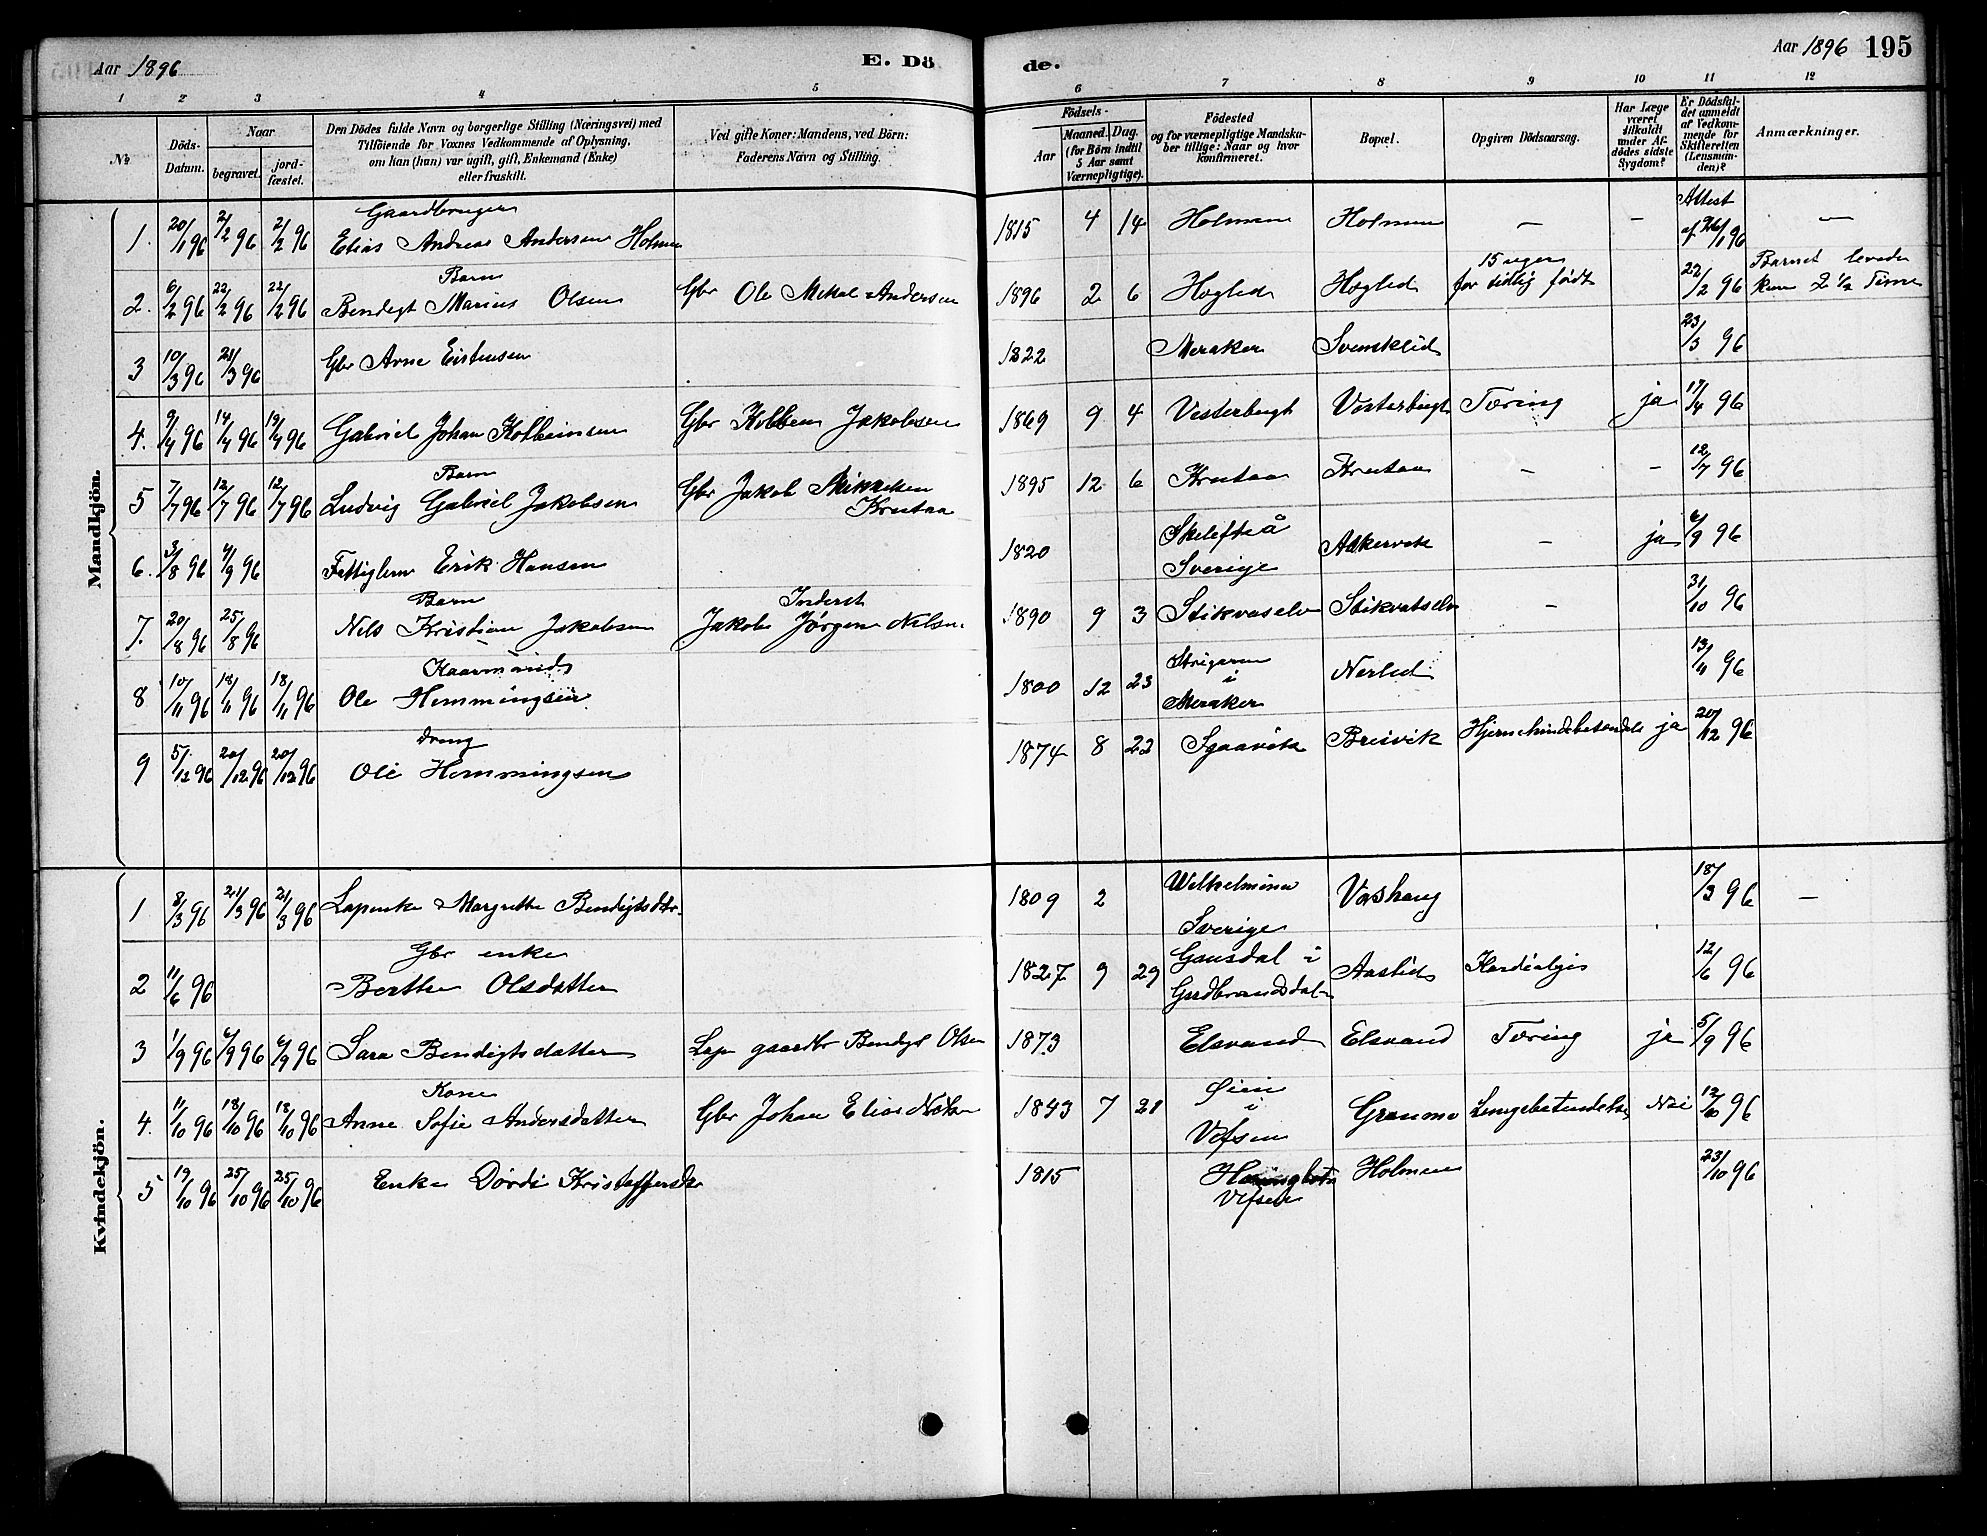 Aar 1896
E. Dö
de.
Aar 1896
195
1 2 3 4 5
6 7 8 9 10 11 12
№
Döds-Datum.
Naar
begravet.
jord-fæstet.
Den Dödes fulde Navn og borgerlige Stilling (Næringsvei) med
Tilföiende for Voxnes Vedkommende af Oplysning,
om han (hun) var ugift, gift, Enkemand (Enke)
eller fraskilt.
Ved gifte Koner: Mandens, ved Börn:
Faderens Navn og Stilling.
Födsels-
Aar
Maaned. Dag.
(for Börn indtil
5 Aar samt
Værnepligtige).
Födested
og for værnepligtige Mandska-
ber tillige: Naar og hvor
konfirmeret.
Bopæl.
Opgiven Dödsaarsag.
Har Læge
været
tilkaldt
under Af-
dödes sidste
Sygdom?
Er Dödsfal-
det anmeldt
af Vedkom-
mende for
Skifteretten
(Lensman-
den)?
Anmærkninger.
Mandkjön.
1. 20/1 96 2/2 96 2/2 96 Gaardbruger
Elias Andreas Andersen Holmen 1815 4 14 Holmen Holmen — — Attest
af 26/1 96 —
2. 6/2 96 22/2 96 22/2 96 Barn
Bendigt Marius Olsen Gbr Ole Mikal Andersen 1896 2 6 Hoglid Hoglid 15 uger
for tidlig født 22/2 96 Barnet levede
kun 2 1/2 Time
3 10/3 96 21/3 96 Gbr Arne Eistensen 1822 Meraker Svensklid 23/3 96
4. 9/4 96 14/4 96 19/4 96 Gabriel Johan Kolbeinsen Gbr Kolben Jakobsen 1869 9 4 Vesterbugt Vesterbugt Tæring ja 17/4 96
5 7/7 96 12/7 96 12/7 96 Barn
Ludvig Gabriel Jakobsen Gbr Jakob Mikkelsen
Krutaa 1895 12 6 Krutaa Krutaa — — 12/7 96
6. 3/8 96 4/9 96 Fattiglem Erik Hansen 1820 Skelefteå
Sverige — ja 6/9 96
7. 20/8 96 25/8 96 Barn
Nils Kristian Jakobsen Inderst
Jakob Jørgen Nilsen 1890 9 3 Stikvaselv Stikvatselv — 31/10 96
8 10/11 96 18/11 96 18/11 96 Kaarmand
Ole Hemmingsen 1800 12 23 i
Meraker Nerlid 13/11 96
9 5/12 96 20/12 96 20/12 96 dreng
Ole Hemmingsen 1874 8 22 Breivik Hjernehindebetændelse ja 20/12 96
Kvindekjön.
1 8/3 96 21/3 96 21/3 96 Lapenke Margrethe Bendigtsdtr. 1809 2 Wilhelmina
Sverige 18/3 96 —
2 11/6 96 Gbr enke
Berthe Olsdatter 1827 9 29 Gausdal i
Gudbrandsdalen Aaslid Kardialgis 12/6 96
3 1/9 96 6/9 96 6/9 96 Sara Bendigtsdatter Lap gaardbr Bendigt Olsen 1873 Elsvand Elsvand Tæring ja 5/9 96
4. 11/10 96 18/10 96 18/10 96 Kone
Anne Sofie Andersdatter Gbr Johan Elias 1843 7 21 Øien
i
Vefsen Lungebetændelse Nei 12/10 96
5 19/10 96 25/10 96 25/10 96 Enke Dordi Kristoffersdtr 1815 Vefsen Holmen 23/10 96